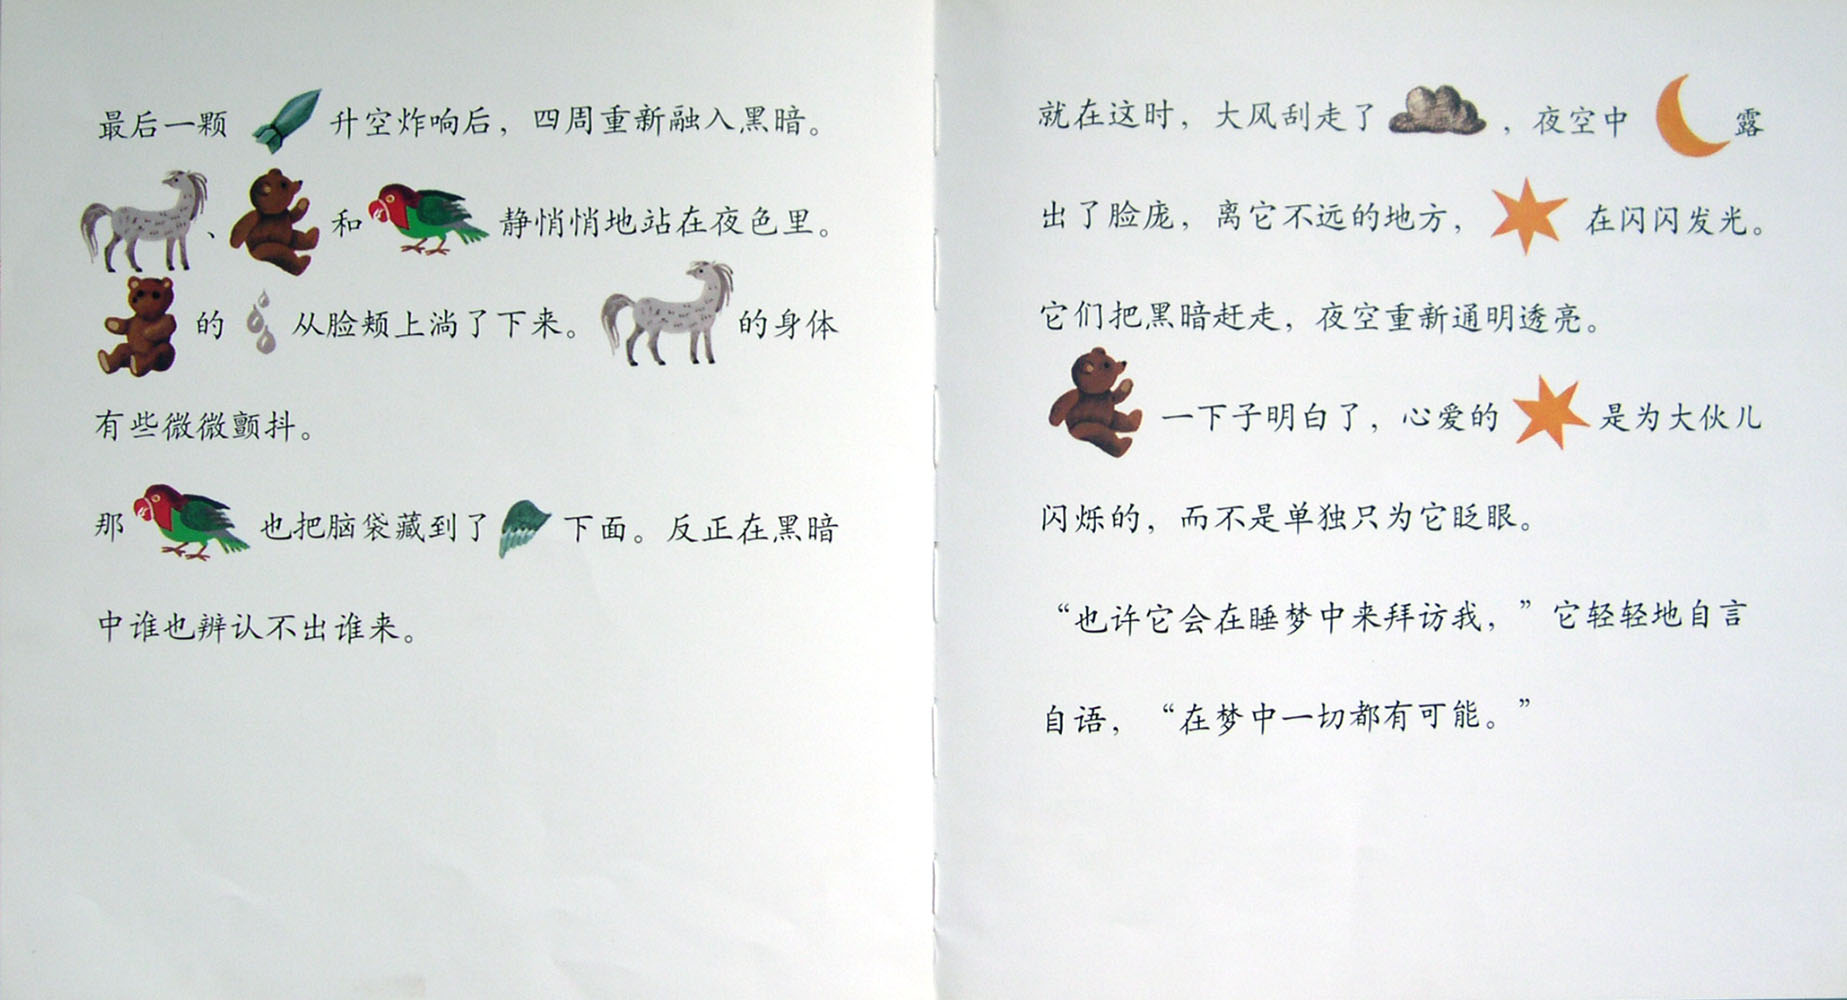 最后一颗 升空炸响后，四周重新融入黑暗。
、 和 静悄悄地站在夜色里。
的 从脸颊上淌了下来。 的身体
有些微微颤抖。
那 也把脑袋藏到了 下面。反正在黑暗
中谁也辨认不出谁来。
就在这时，大风刮走了 ，夜空中 露
出了脸庞，离它不远的地方， 在闪闪发光。
它们把黑暗赶走，夜空重新通明透亮。
一下子明白了，心爱的 是为大伙儿
闪烁的，而不是单独只为它眨眼。
“也许它会在睡梦中来拜访我，”它轻轻地自言
自语，“在梦中一切都有可能。”